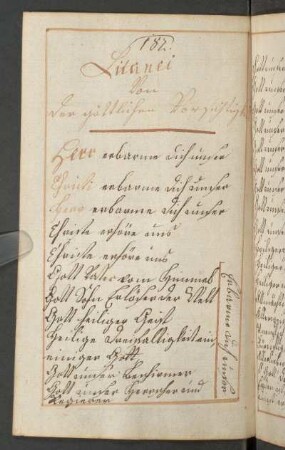 182.
Litanei
Von
der göttlichen Vorsichtigkeit
Herr erbarme dich unser
Christe erbarme dich unser
Herr erbarme dich unser
Christe erhöre uns
Christe erhöre uns
Gott Vater vom Himmel
Gott Sohn Erlöser der Welt
Gott heiliger Geist
Heilige Dreyfaltigkeit ein
einiger Gott
Gott unser
Gott unser Herrscher und
Regierer
Erbarme dich unser